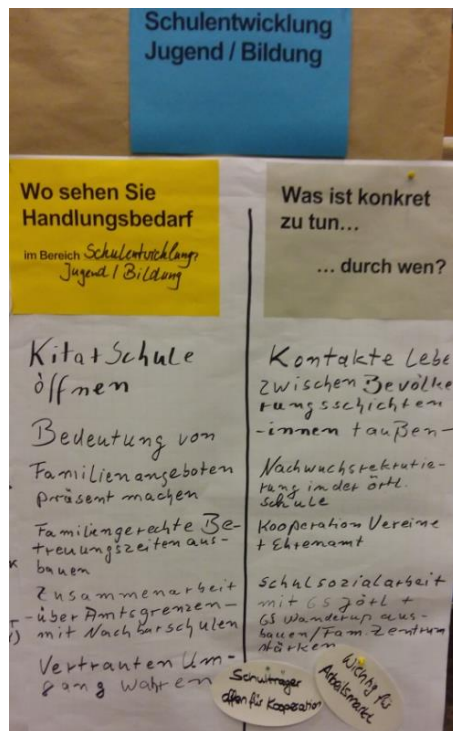 Schulentwicklung
Jugend / Bildung
Wo sehen Sie
Handlungsbedarf
im Bereich Schulentwicklung,
Jugend / Bildung
Kita + Schule
öffnen
Bedeutung von
Familienangeboten
präsent machen
Familiengerechte Be-
treuungszeiten aus-
bauen
Zusammenarbeit
-über Amtsgrenzen-
mit Nachbarschulen
Vertrauten Um-
gang wahren
Was ist konkret
zu tun...
... durch wen?
Kontakte lebe
zwischen Bevölke
rungsschichten
-innen + außen-
Nachwuchsrekrutie-
rung in der örtl.
Schule
Kooperation Vereine
+ Ehrenamt
Schulsozialarbeit
mit GS +
GS Wanderup aus-
bauen/Fam.Zentrum
stärken
Schulträger
offen für Kooperation
Wichtig für
Arbeitsmarkt